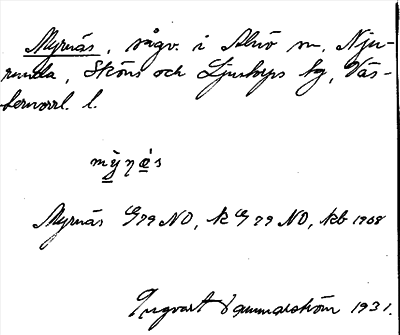 Myrnäs, sågv. i Alnö sn, Nju-
runda, Sköns och Ljustorps tg, Väs-
ternorrl. l.
Myrnäs G79 NO, k G 79 NO, kb 1908
Ingvart 1931.